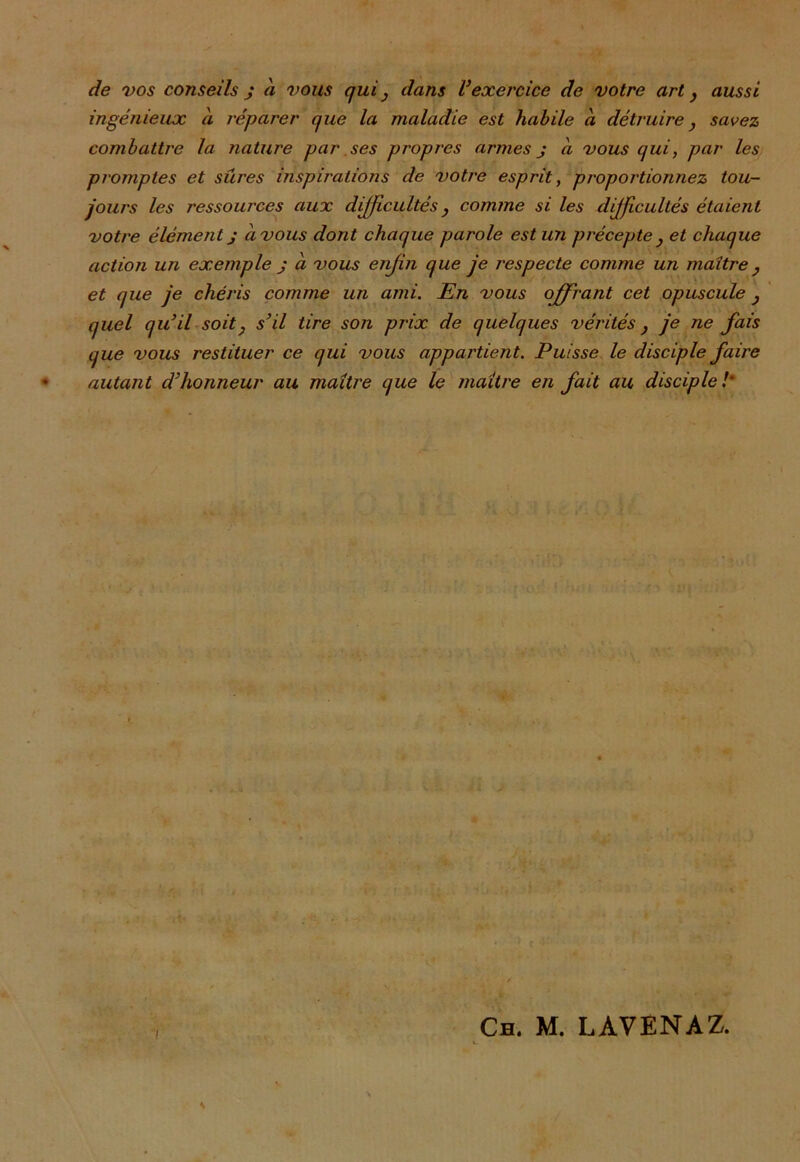 de vos conseils ; à vous qui, dans l'exercice de votre art, aussi
ingénieux à réparer que la maladie est habile à détruire, savez
combattre la nature par ses propres armes ; à vous qui, par les
promptes et sûres inspirations de votre esprit, proportionnez tou-
jours les ressources aux difficultés, comme si les difficultés étaient
votre élément ; à vous dont chaque parole est un précepte, et chaque
action un exemple ; à vous enfin que je respecte comme un maître,
et que je chéris comme un ami. En vous offrant cet opuscule,
quel qu'il soit, s'il tire son prix de quelques vérités, je ne fais
que vous restituer ce qui vous appartient. Puisse le disciple faire
autant d'honneur au maître que le maître en fait au disciple !
Ch. M. LAVENAZ.